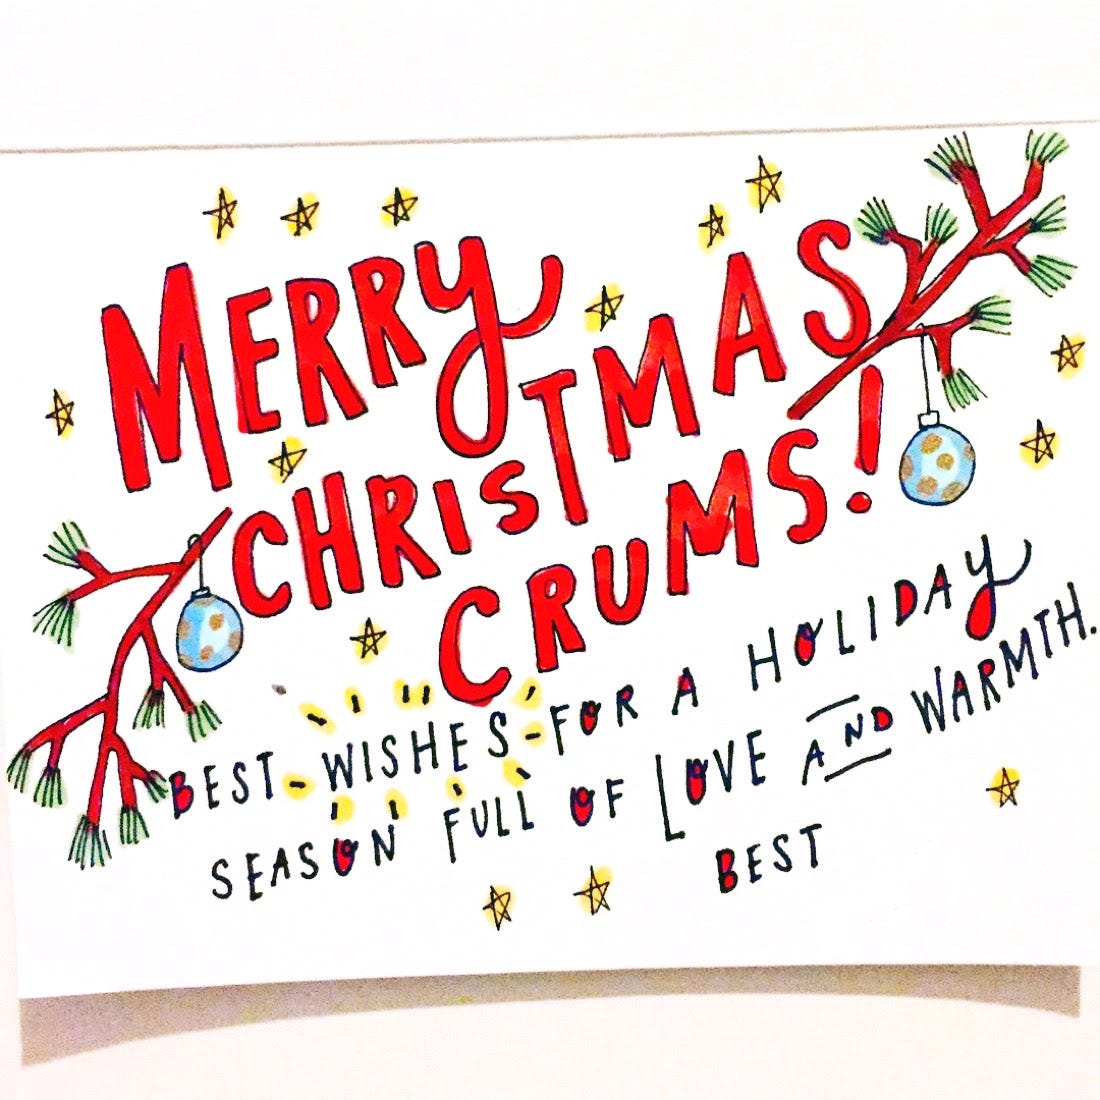 MERRY
CHRISTMAS
CRUMS!
BEST WISHES FOR A HOLIDAY
SEASON FULL OF LOVE AND WARMTH.
BEST